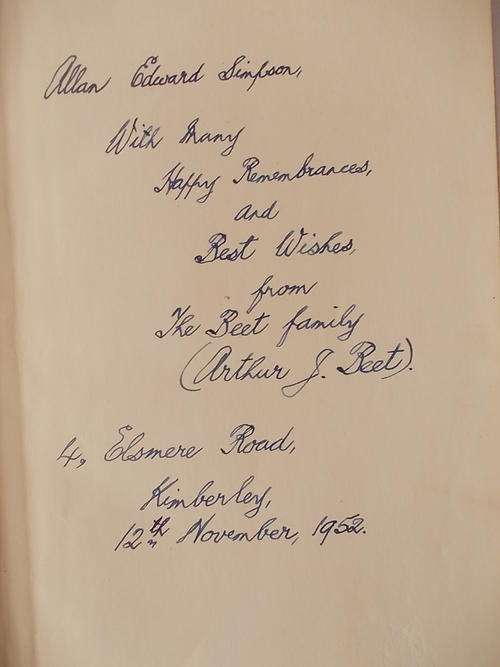 Allan Edward Simpson,
With Many
Happy Remembrances,
and
Best Wishes,
from
The Beet family
(Arthur J. Beet).
4, Elsmere Road,
Kimberley,
12th November, 1952.